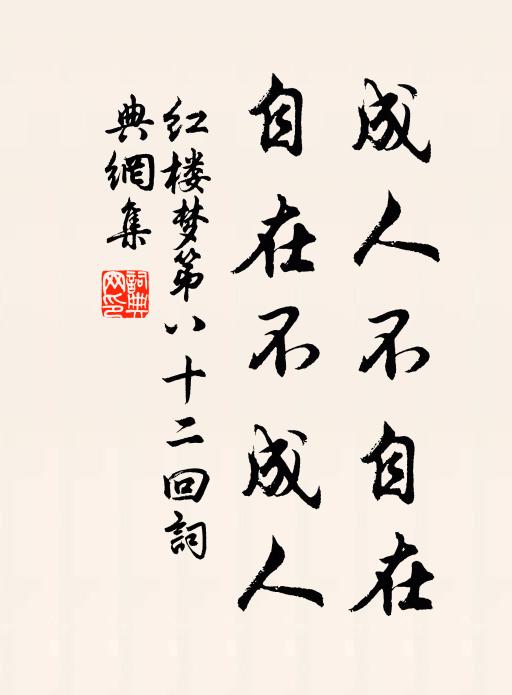 成人不自在
自在不成人
红楼梦第八十二回詞
典網集
詞典网印